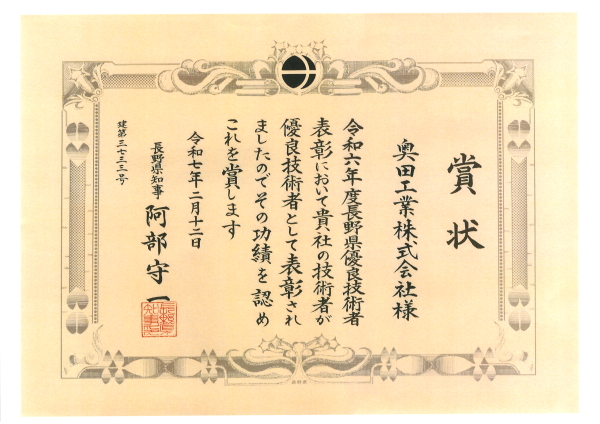 賞状
奥田工業株式会社様
令和六年度長野県優良技術者
表彰において貴社の技術者が
優良技術者として表彰され
ましたのでその功績を認め
これを賞します
令和七年二月十二日
長野県知事 阿部守一
建第三七三三号